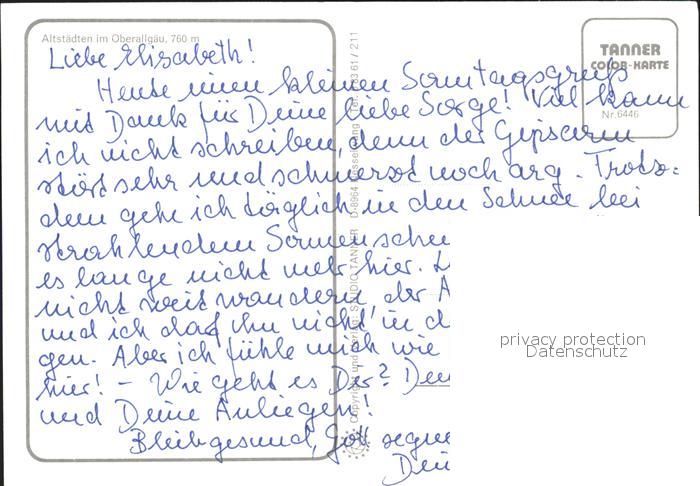 Altstädten im Oberallgäu, 760 m
TANNER
COLOR-KARTE
Nr. 6446
Liebe Elisabeth!
Heute einen kleinen Sonntagsgruß
mit Dank für Deine liebe Sorge! Viel kann
ich nicht schreiben, denn der Gipsarm
stört sehr und schmerzt noch arg. Trotz=
dem gehe ich täglich in den Schnee bei
strahlendem Sonnenschei
es lange nicht mehr hier.
nicht weit wandern, der A
und ich darf ihn nicht in d
gen. Aber ich fühle mich wie
hier! - Wie geht es Dir?
und Deine Anliegen!
Bleib gesund, Gott segne
Dei
Copyright und Verlag: STUDIO TANNER D-8964 Nesselwang Tel. 08361/211
privacy protection
Datenschutz